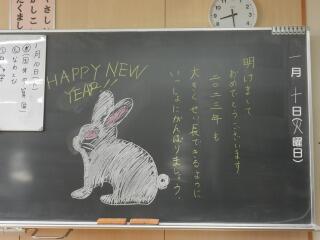 HAPPY NEW
YEAR!!
明けまして
おめでとうございます
二〇二三年も
大きくせい長できるように
いっしょにがんばりましょう。
一月十日(火曜日)
一月十日(火)